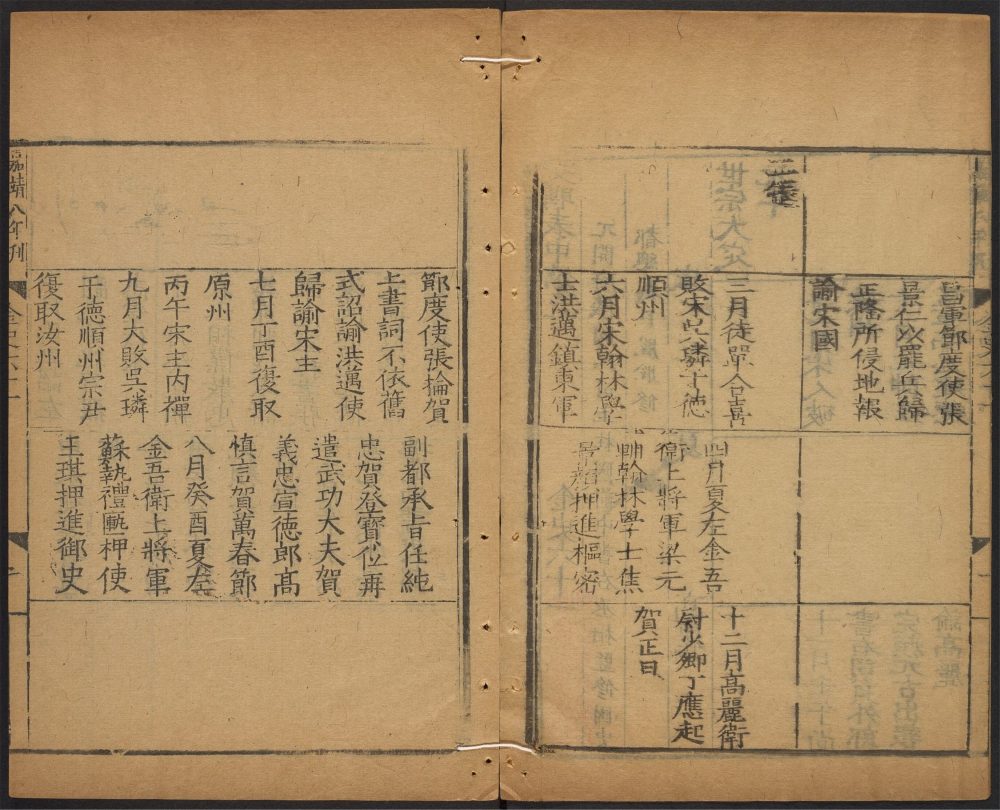 昌軍節度使張
景仁以罷兵歸
正隆所侵地報
諭宋國
二年
三月徒單合喜
敗宋吳璘于德
順州
六月宋翰林學
士洪邁鎮東軍
四月夏左金吾
衛上將軍梁元
輔翰林學士焦
景顏押進樞密
十二月高麗衛
尉少卿丁應起
賀正旦
節度使張掄賀
上書詞不依舊
式詔諭洪邁使
歸諭宋主
七月丁酉復取
原州
丙午宋主內禪
九月大敗吳璘
于德順州宗尹
復取汝州
副都承旨任純
忠賀登寶位再
遣武功大夫賀
義忠宣德郎高
慎言賀萬春節
八月癸酉夏左
金吾衛上將軍
蘇執禮匭押使
王琪押進御史
嘉靖八年刊